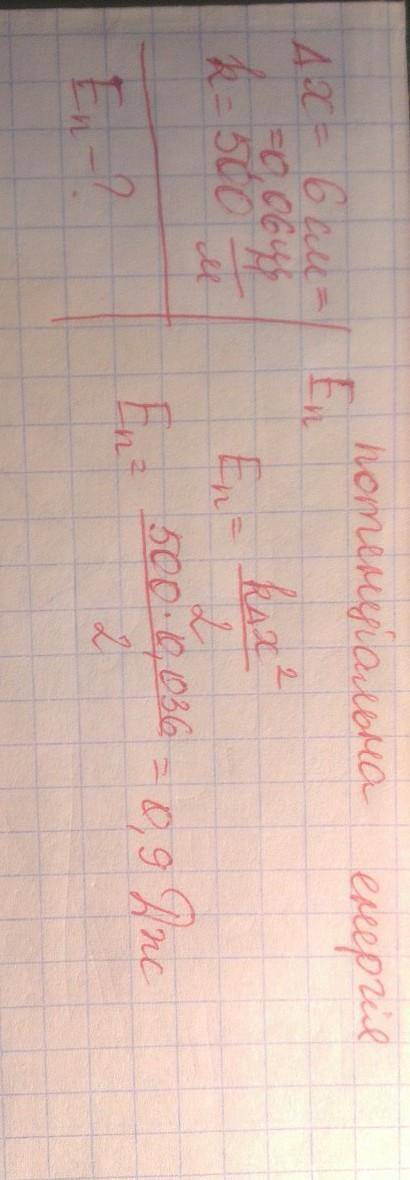 Δx = 6 см =
= 0,06 м
k = 500 Н/м
Eп - ?
Eп потенціальна енергія
Eп = kΔx²/2
Eп = 500·0,036/2 = 0,9 Дж